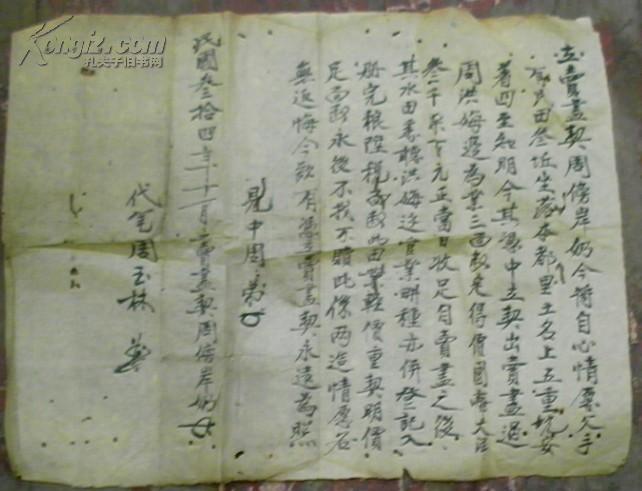 立賣盡契周傍岸奶今簡自心情愿欠手
民田叁坵坐落本都里土名上五重坑安
着四至知明今其憑中立契出賣盡過
周洪海邊為業三面敨得價國幣大洋
叁千 百元正當日收足自賣盡之後
其水田悉聽洪海邊官業畊種亦併登記入
册完粮陞税面敨此田業輕價重契明價
足面敨永後不找不贖此係两造情愿名
無返悔今敨有憑立賣盡契永遠為照
見中周
民國叁拾四年十一月立賣盡契周傍岸奶
代笔周玉林
Kongfz.com
孔夫子旧书网